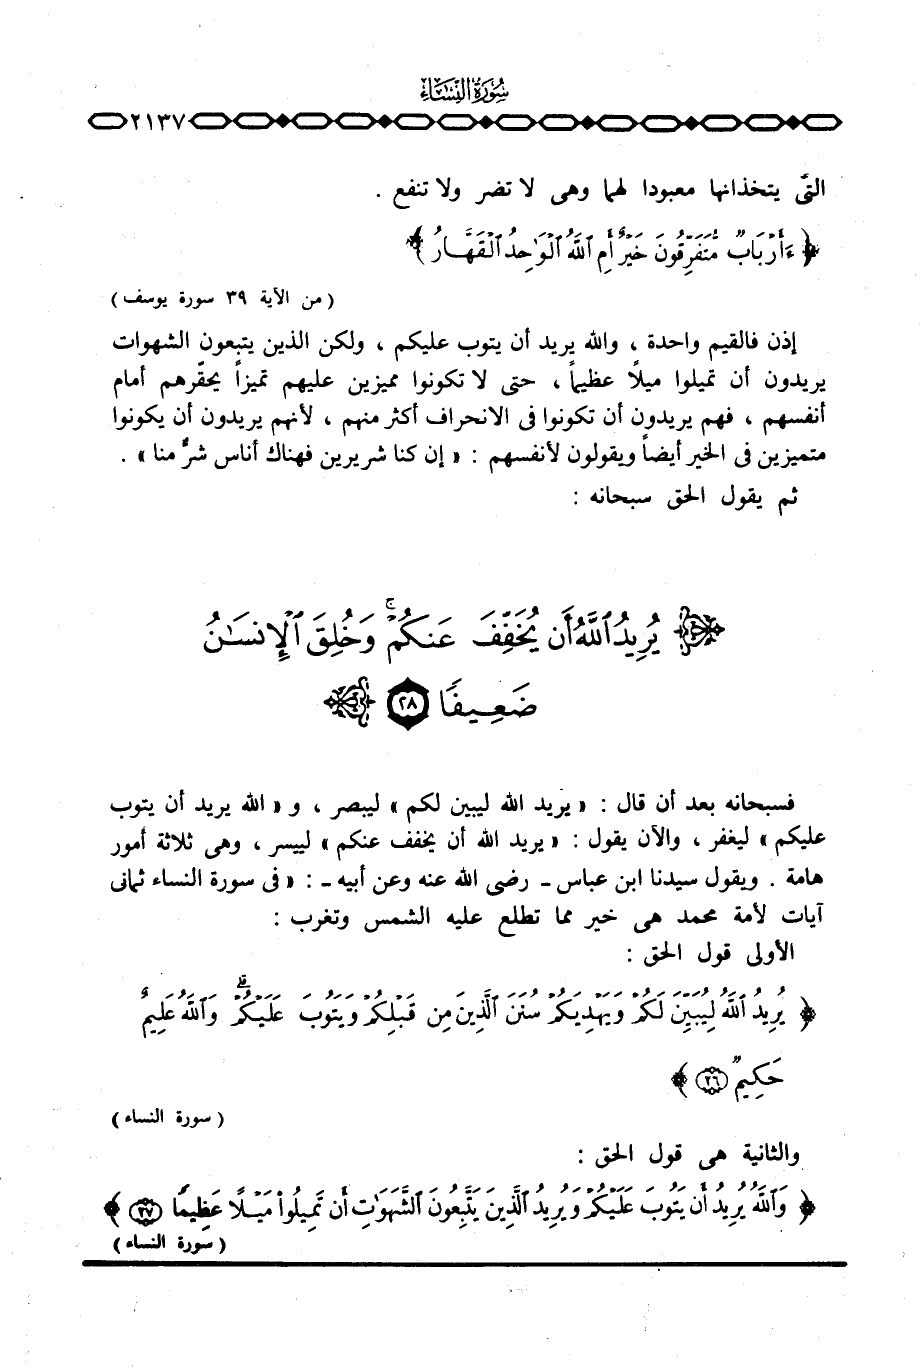 سُورَةُ النِّسَاءِ
٢١٣٧
التى يتخذانها معبودا لهما وهى لا تضر ولا تنفع .
﴿ ءَأَرْبَابٌ مُّتَفَرِّقُونَ خَيْرٌ أَمِ ٱللَّهُ ٱلْوَٰحِدُ ٱلْقَهَّارُ ﴾
( من الآية ٣٩ سورة يوسف )
إذن فالقيم واحدة ، والله يريد أن يتوب عليكم ، ولكن الذين يتبعون الشهوات
يريدون أن تميلوا ميلاً عظيماً ، حتى لا تكونوا مميزين عليهم تميزاً يحقّرهم أمام
أنفسهم ، فهم يريدون أن تكونوا فى الانحراف أكثر منهم ، لأنهم يريدون أن يكونوا
متميزين فى الخير أيضاً ويقولون لأنفسهم : « إن كنا شريرين فهناك أناس شرٌّ منا » .
ثم يقول الحق سبحانه :
يُرِيدُ ٱللَّهُ أَن يُخَفِّفَ عَنكُمْ ۚ وَخُلِقَ ٱلْإِنسَٰنُ
ضَعِيفًا ٢٨
فسبحانه بعد أن قال : « يريد الله ليبين لكم » ليبصر ، و « الله يريد أن يتوب
عليكم » ليغفر ، والآن يقول : « يريد الله أن يخفف عنكم » لييسر ، وهى ثلاثة أمور
هامة . ويقول سيدنا ابن عباس ـ رضى الله عنه وعن أبيه ـ : « فى سورة النساء ثمانى
آيات لأمة محمد هى خير مما تطلع عليه الشمس وتغرب :
الأولى قول الحق :
﴿ يُرِيدُ ٱللَّهُ لِيُبَيِّنَ لَكُمْ وَيَهْدِيَكُمْ سُنَنَ ٱلَّذِينَ مِن قَبْلِكُمْ وَيَتُوبَ عَلَيْكُمْ ۗ وَٱللَّهُ عَلِيمٌ
حَكِيمٌ ٢٦ ﴾
( سورة النساء )
والثانية هى قول الحق :
﴿ وَٱللَّهُ يُرِيدُ أَن يَتُوبَ عَلَيْكُمْ وَيُرِيدُ ٱلَّذِينَ يَتَّبِعُونَ ٱلشَّهَوَٰتِ أَن تَمِيلُوا۟ مَيْلًا عَظِيمًا ٢٧ ﴾
( سورة النساء )